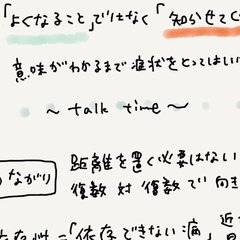 「よくなること」ではなく「知らせてく
意味がわかるまで症状をとってはいい
〜 talk time 〜
距離を置く必要はない
ながり
複数 対 複数で 向き
=「依存できない痛」近